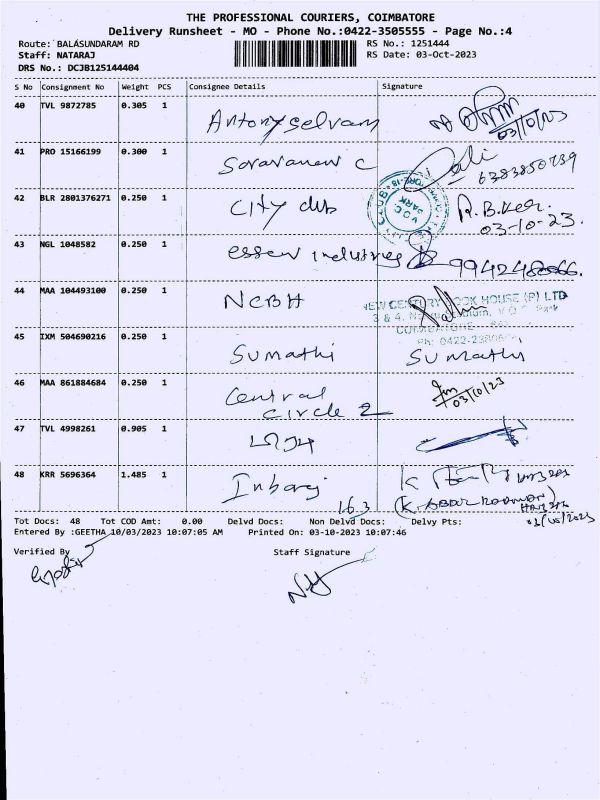 THE PROFESSIONAL COURIERS, COIMBATORE
Delivery Runsheet - MO - Phone No.:0422-3505555 - Page No.:4
Route: BALASUNDARAM RD
RS No.: 1251444
Staff: NATARAJ
RS Date: 03-Oct-2023
DRS No.: DCJB125144404
S No Consignment No Weight PCS Consignee Details Signature
40 TVL 9872785 0.305 1 Antonyselvam 03/10/23
41 PRO 15166199 0.300 1 Saravanan C
42 BLR 2801376271 0.250 1 City club
03-10-23.
43 NGL 1048582 0.250 1 essen industries
44 MAA 104493100 0.250 1 NCBH
NEW CENTURY BOOK HOUSE (P) LTD
45 IXM 504690216 0.250 1 Sumathi Sumathi
46 MAA 861884684 0.250 1 Central
circle 2 03/10/23
47 TVL 4998261 0.905 1
48 KRR 5696364 1.485 1 Inbaraj
163
Tot Docs: 48 Tot COD Amt: 0.00 Delvd Docs: Non Delvd Docs: Delvy Pts:
Entered By :GEETHA 10/03/2023 10:07:05 AM Printed On: 03-10-2023 10:07:46
Verified By Staff Signature